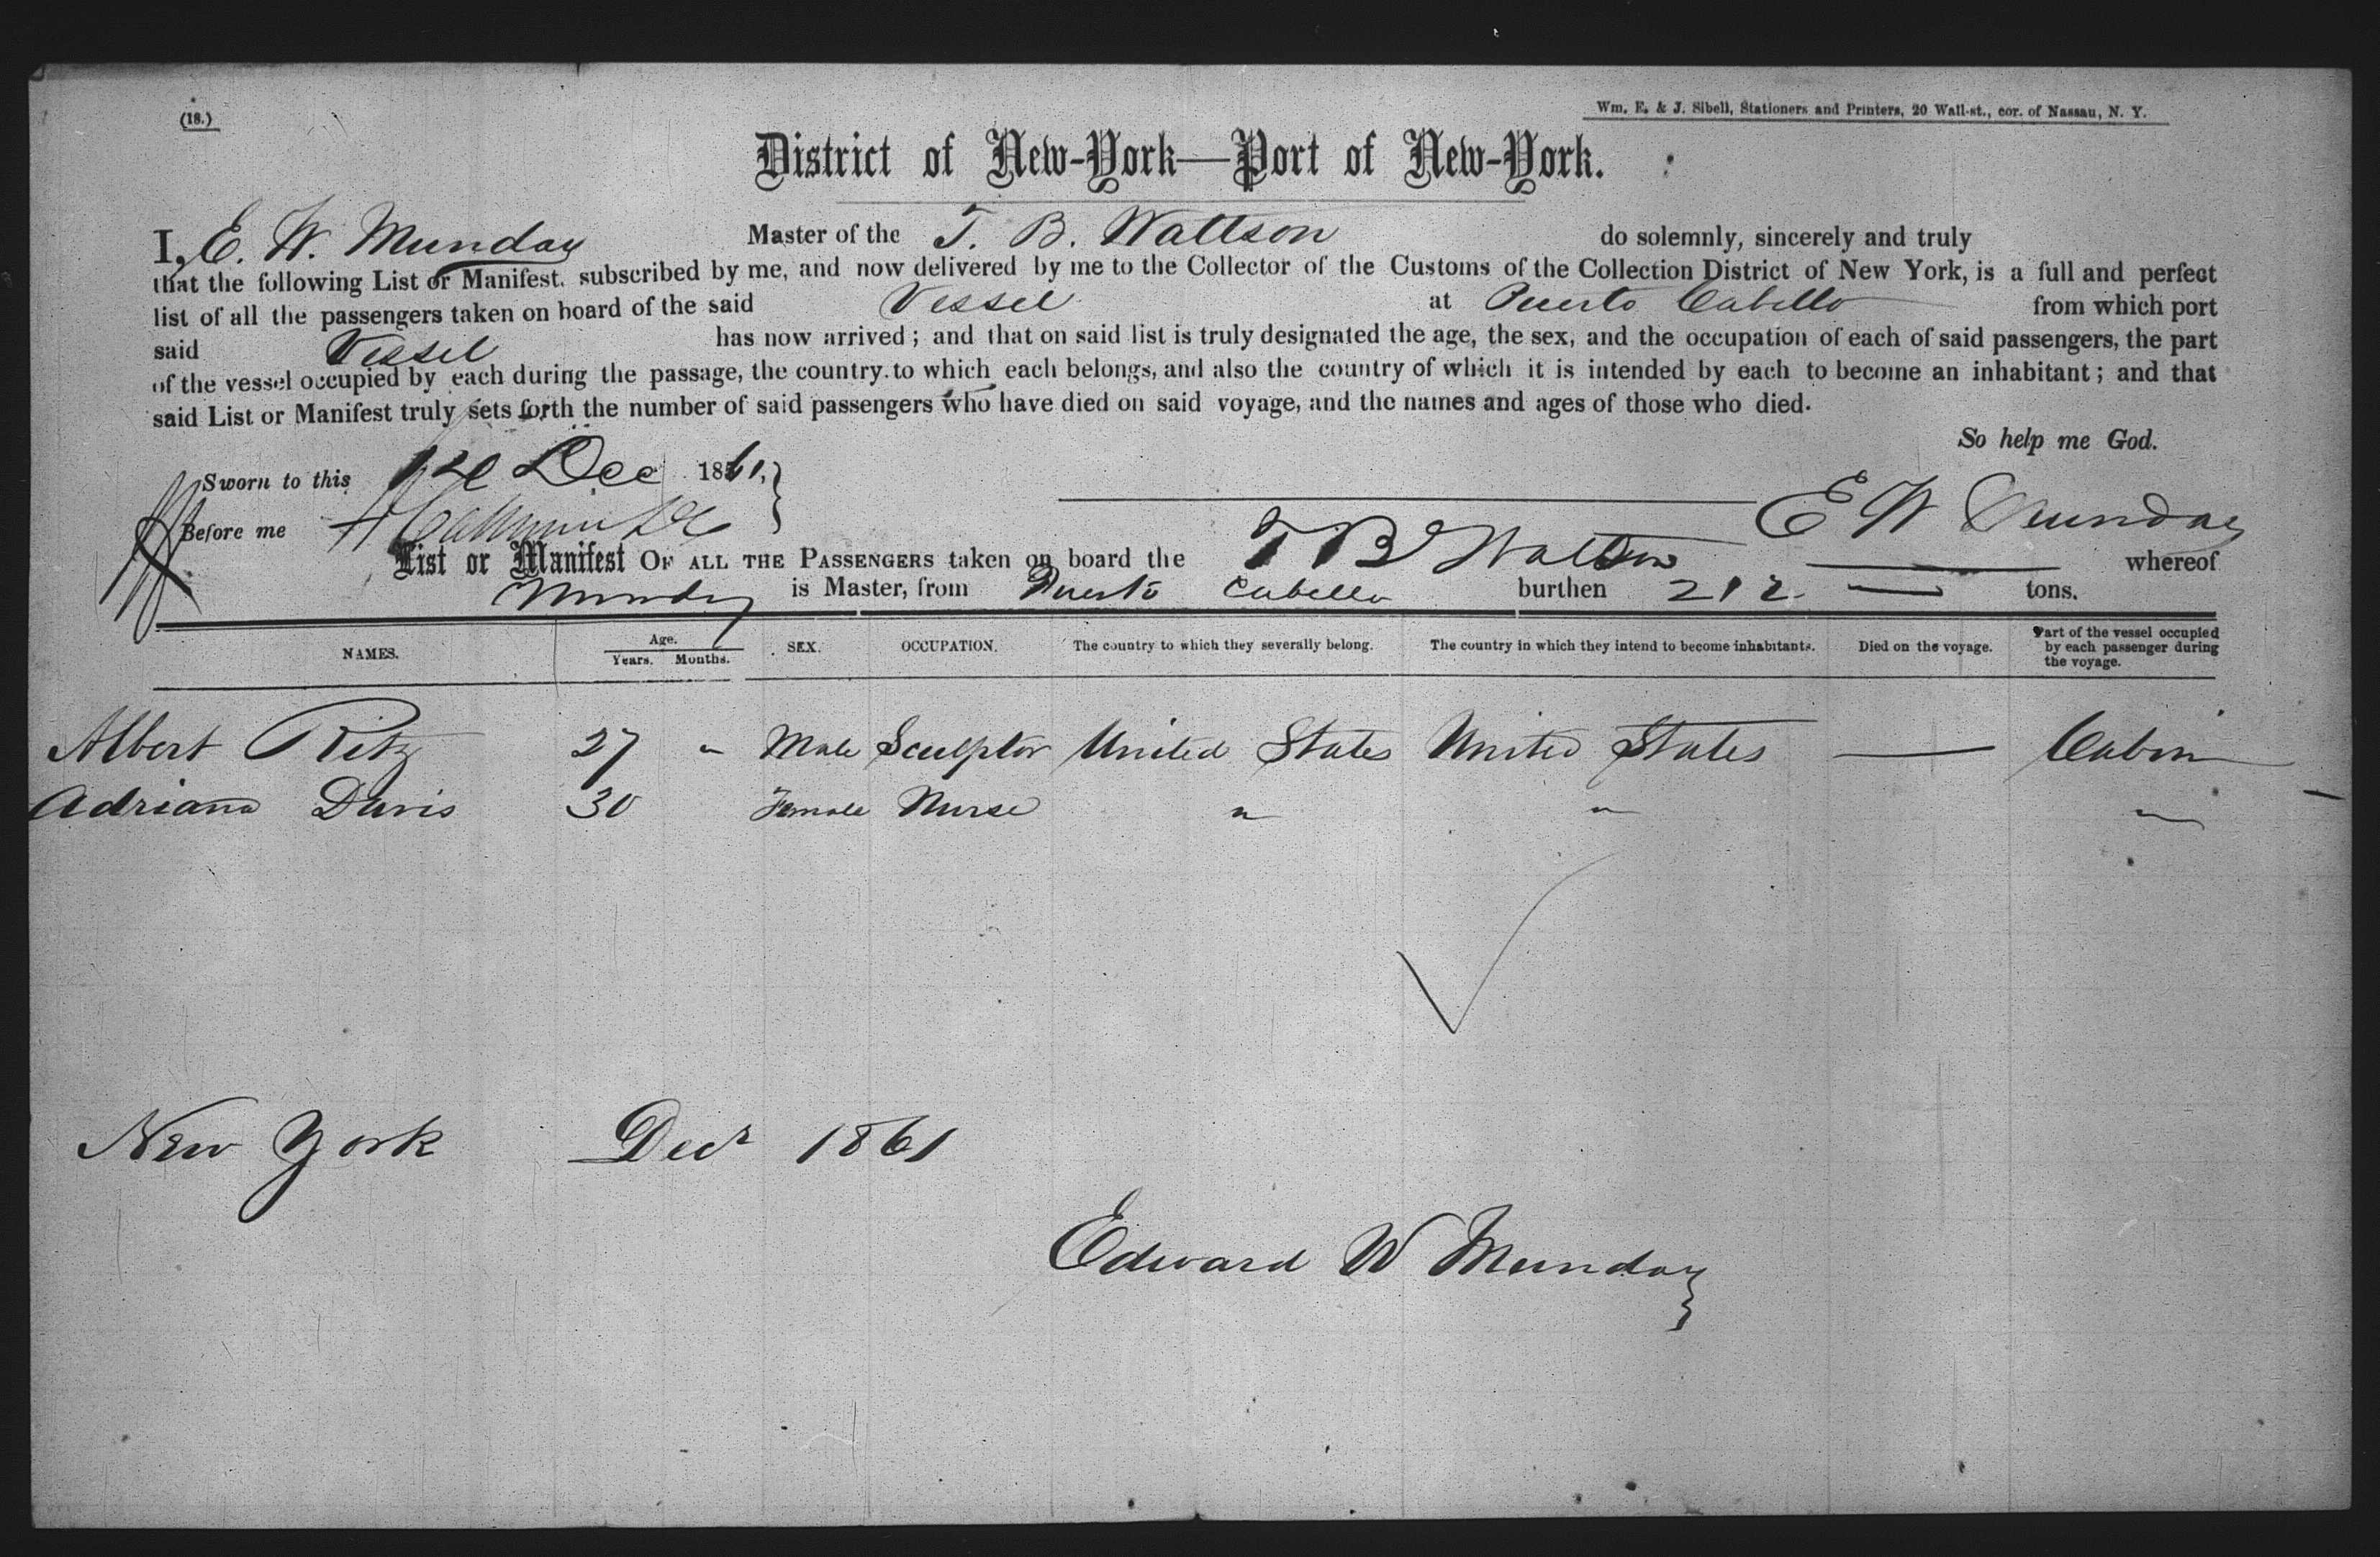 (18.)
Wm. E. & J. Sibell, Stationers and Printers, 20 Wall-st., cor. of Nassau, N. Y.
District of New-York—Port of New-York.
I, E. W. Munday Master of the T. B. Wattson do solemnly, sincerely and truly
that the following List or Manifest. subscribed by me, and now delivered by me to the Collector of the Customs of the Collection District of New York, is a full and perfect
list of all the passengers taken on board of the said Vessel at Puerto Cabello from which port
said Vessel has now arrived; and that on said list is truly designated the age, the sex, and the occupation of each of said passengers, the part
of the vessel occupied by each during the passage, the country to which each belongs, and also the country of which it is intended by each to become an inhabitant; and that
said List or Manifest truly sets forth the number of said passengers who have died on said voyage, and the names and ages of those who died.
So help me God.
Sworn to this Dec 1861,
E W Munday
Before me
List or Manifest OF ALL THE PASSENGERS taken on board the T B Wattson whereof
Munday is Master, from Puerto Cabello burthen 212 tons.
NAMES. Age. Years. Months. SEX. OCCUPATION. The country to which they severally belong. The country in which they intend to become inhabitants. Died on the voyage. Part of the vessel occupied by each passenger during the voyage.
Albert Ritz 27 " Male Sculptor United States United States — Cabin
Adriana Davis 30 Female Nurse " " "
New York Decr 1861
Edward W Munday